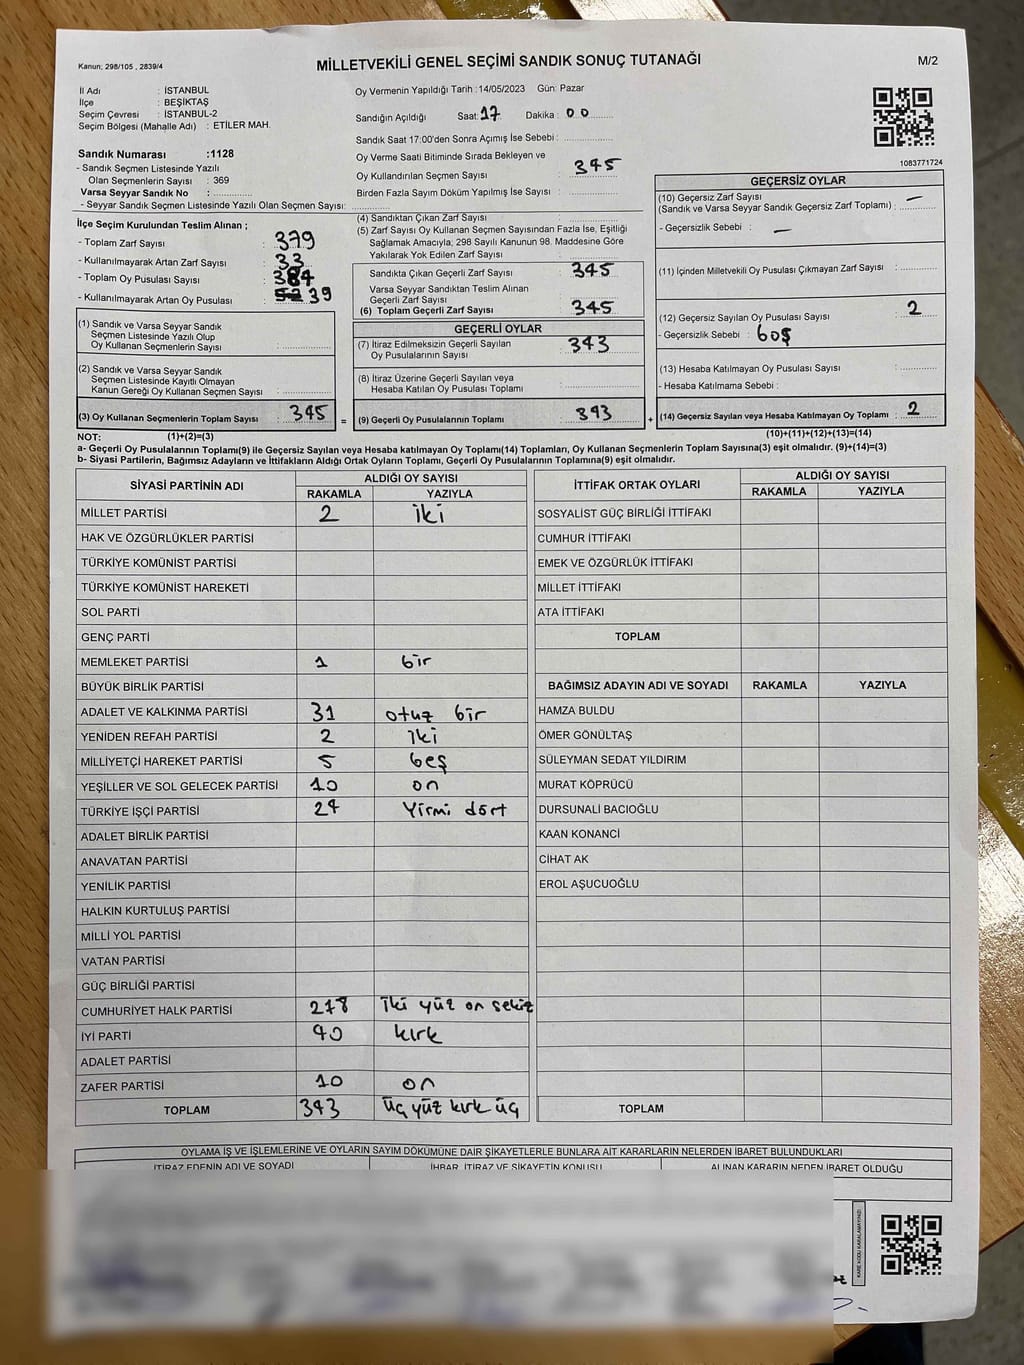 Kanun; 298/105 , 2839/4
MİLLETVEKİLİ GENEL SEÇİMİ SANDIK SONUÇ TUTANAĞI
M/2
İl Adı : İSTANBUL
İlçe : BEŞİKTAŞ
Seçim Çevresi : İSTANBUL-2
Seçim Bölgesi (Mahalle Adı) : ETİLER MAH.
Sandık Numarası :1128
- Sandık Seçmen Listesinde Yazılı
Olan Seçmenlerin Sayısı : 369
Varsa Seyyar Sandık No :
- Seyyar Sandık Seçmen Listesinde Yazılı Olan Seçmen Sayısı:
Oy Vermenin Yapıldığı Tarih :14/05/2023 Gün: Pazar
Sandığın Açıldığı Saat: 17 Dakika : 00
Sandık Saat 17:00'den Sonra Açımış İse Sebebi :
Oy Verme Saati Bitiminde Sırada Bekleyen ve
Oy Kullandırılan Seçmen Sayısı : 345
Birden Fazla Sayım Döküm Yapılmış İse Sayısı :
1083771724
İlçe Seçim Kurulundan Teslim Alınan ;
- Toplam Zarf Sayısı : 379
- Kullanılmayarak Artan Zarf Sayısı : 33
- Toplam Oy Pusulası Sayısı : 384
- Kullanılmayarak Artan Oy Pusulası : 39
(1) Sandık ve Varsa Seyyar Sandık
Seçmen Listesinde Yazılı Olup
Oy Kullanan Seçmenlerin Sayısı :
(2) Sandık ve Varsa Seyyar Sandık
Seçmen Listesinde Kayıtlı Olmayan
Kanun Gereği Oy Kullanan Seçmen Sayısı :
(3) Oy Kullanan Seçmenlerin Toplam Sayısı : 345 =
(4) Sandıktan Çıkan Zarf Sayısı :
(5) Zarf Sayısı Oy Kullanan Seçmen Sayısından Fazla İse, Eşitliği
Sağlamak Amacıyla, 298 Sayılı Kanunun 98. Maddesine Göre
Yakılarak Yok Edilen Zarf Sayısı :
Sandıkta Çıkan Geçerli Zarf Sayısı : 345
Varsa Seyyar Sandıktan Teslim Alınan
Geçerli Zarf Sayısı :
(6) Toplam Geçerli Zarf Sayısı : 345
GEÇERLİ OYLAR
(7) İtiraz Edilmeksizin Geçerli Sayılan
Oy Pusulalarının Sayısı : 343
(8) İtiraz Üzerine Geçerli Sayılan veya
Hesaba Katılan Oy Pusulası Toplamı :
(9) Geçerli Oy Pusulalarının Toplamı : 343 +
GEÇERSİZ OYLAR
(10) Geçersiz Zarf Sayısı : —
(Sandık ve Varsa Seyyar Sandık Geçersiz Zarf Toplamı) :
- Geçersizlik Sebebi : —
(11) İçinden Milletvekili Oy Pusulası Çıkmayan Zarf Sayısı :
(12) Geçersiz Sayılan Oy Pusulası Sayısı : 2
- Geçersizlik Sebebi : boş
(13) Hesaba Katılmayan Oy Pusulası Sayısı :
- Hesaba Katılmama Sebebi :
(14) Geçersiz Sayılan veya Hesaba Katılmayan Oy Toplamı : 2
NOT: (1)+(2)=(3) (10)+(11)+(12)+(13)=(14)
a- Geçerli Oy Pusulalarının Toplamı(9) ile Geçersiz Sayılan veya Hesaba katılmayan Oy Toplamı(14) Toplamları, Oy Kullanan Seçmenlerin Toplam Sayısına(3) eşit olmalıdır. (9)+(14)=(3)
b- Siyasi Partilerin, Bağımsız Adayların ve İttifakların Aldığı Ortak Oyların Toplamı, Geçerli Oy Pusulalarının Toplamına(9) eşit olmalıdır.
SİYASİ PARTİNİN ADI ALDIĞI OY SAYISI
RAKAMLA YAZIYLA
MİLLET PARTİSİ 2 iki
HAK VE ÖZGÜRLÜKLER PARTİSİ
TÜRKİYE KOMÜNİST PARTİSİ
TÜRKİYE KOMÜNİST HAREKETİ
SOL PARTİ
GENÇ PARTİ
MEMLEKET PARTİSİ 1 bir
BÜYÜK BİRLİK PARTİSİ
ADALET VE KALKINMA PARTİSİ 31 otuz bir
YENİDEN REFAH PARTİSİ 2 iki
MİLLİYETÇİ HAREKET PARTİSİ 5 beş
YEŞİLLER VE SOL GELECEK PARTİSİ 10 on
TÜRKİYE İŞÇİ PARTİSİ 24 Yirmi dört
ADALET BİRLİK PARTİSİ
ANAVATAN PARTİSİ
YENİLİK PARTİSİ
HALKIN KURTULUŞ PARTİSİ
MİLLİ YOL PARTİSİ
VATAN PARTİSİ
GÜÇ BİRLİĞİ PARTİSİ
CUMHURİYET HALK PARTİSİ 218 iki yüz on sekiz
İYİ PARTİ 40 kırk
ADALET PARTİSİ
ZAFER PARTİSİ 10 on
TOPLAM 343 üç yüz kırk üç
İTTİFAK ORTAK OYLARI ALDIĞI OY SAYISI
RAKAMLA YAZIYLA
SOSYALİST GÜÇ BİRLİĞİ İTTİFAKI
CUMHUR İTTİFAKI
EMEK VE ÖZGÜRLÜK İTTİFAKI
MİLLET İTTİFAKI
ATA İTTİFAKI
TOPLAM
BAĞIMSIZ ADAYIN ADI VE SOYADI RAKAMLA YAZIYLA
HAMZA BULDU
ÖMER GÖNÜLTAŞ
SÜLEYMAN SEDAT YILDIRIM
MURAT KÖPRÜCÜ
DURSUNALİ BACIOĞLU
KAAN KONANCİ
CİHAT AK
EROL AŞUCUOĞLU
TOPLAM
OYLAMA İŞ VE İŞLEMLERİNE VE OYLARIN SAYIM DÖKÜMÜNE DAİR ŞİKAYETLERLE BUNLARA AİT KARARLARIN NELERDEN İBARET BULUNDUKLARI
İTİRAZ EDENİN ADI VE SOYADI İHBAR, İTİRAZ VE ŞİKAYETİN KONUSU ALINAN KARARIN NEDEN İBARET OLDUĞU
KARE KODU KARALAMAYINIZ!